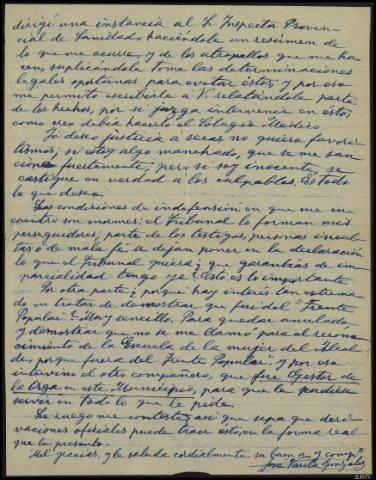 dirigí una instancia al Sr Inspector Provin-
cial de Sanidad haciéndole un resúmen de
lo que me ocurre, y de los atropellos que me ha-
cen, suplicándole tome las determinaciones
legales oportunas para evitar éstos; y por eso
me permito escribirle a V. relatándole parte
de los hechos, por si juzga intervenir en ésto,
como creo debía hacerlo el Colegio Médico
Yo deseo justicia a secas no quiero favori-
tismos, si estoy algo manchado, que se me san-
cione fuertemente; pero si soy inocente, se
castigue en verdad a los culpables. Es todo
lo que deseo.
Las condiciones de indefensión en que me en-
cuentro son enormes; el tribunal lo forman mis
perseguidores; parte de los testigos, personas incul-
tas o de mala fe, se dejan poner en la declaración
lo que el tribunal quiera; ¿que garantías de im-
parcialidad tengo yo? Esto es lo importante
Por otra parte ¿porque hay interés tan extrema-
do en tratar de demostrar que fuí del "Frente
Popular"? Muy sencillo. Para quedar anulado,
y demostrar que no se me llamó "para el recono-
cimiento de la Escuela de la mujer del Alcal-
de, porque fuera del Frente Popular", y por eso
intervino el otro compañero, que fue Gestor de
la Orga en este Municipio, para que le pudiera
servir en todo lo que le pida.
Le ruego me conteste, así que sepa que deri-
vaciones oficiales puede traer ésto, en la forma real
que le presento.
Mil gracias, y le saluda cordialmente su buen a. y compº
José Varela González